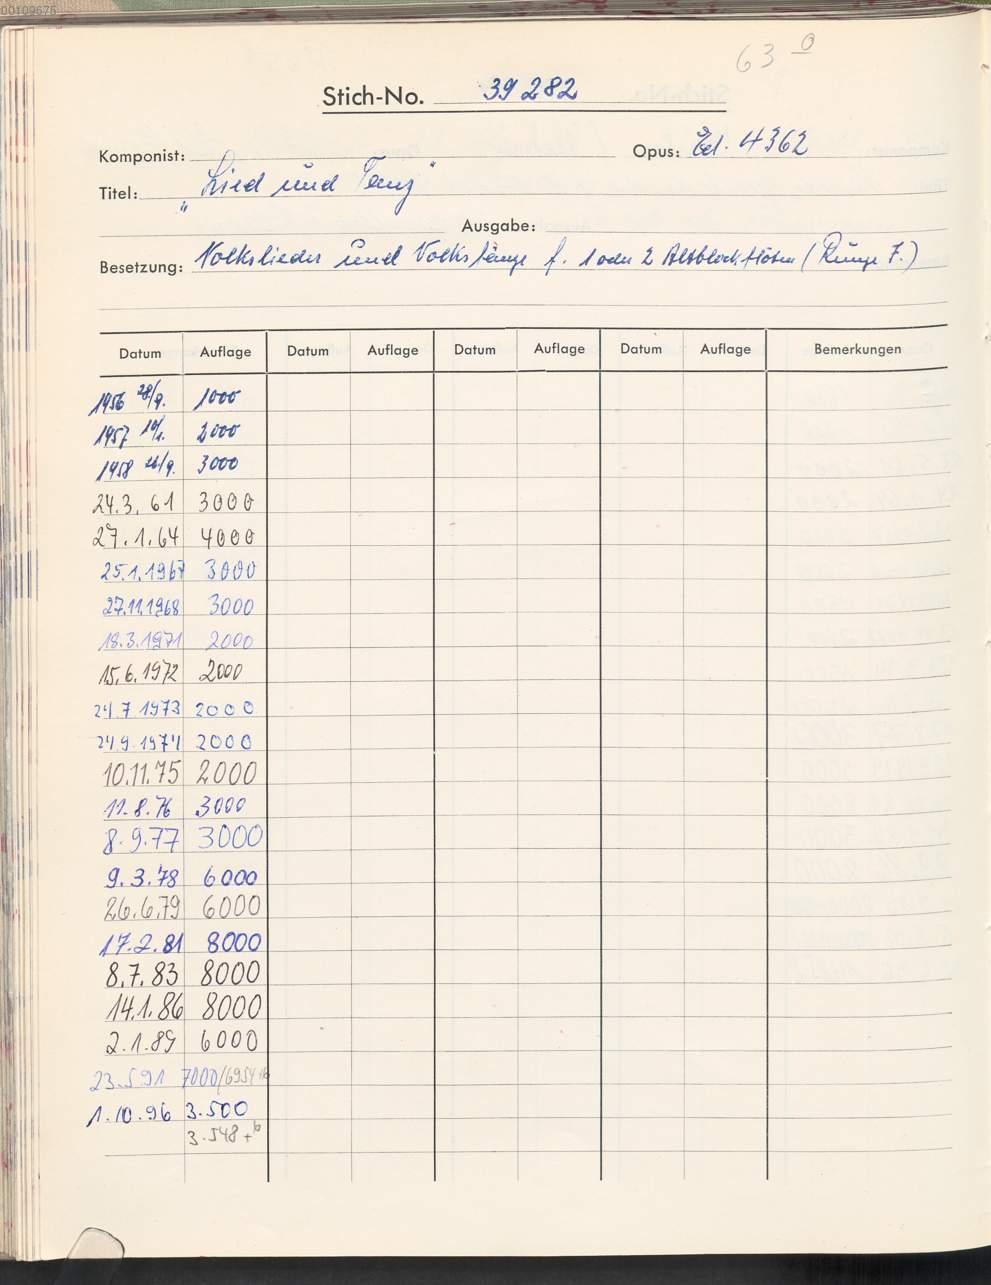 00109676
63 0
Stich-No. 39 282
Komponist: Opus: Ed. 4362
Titel: „Lied und Tanz"
Ausgabe:
Besetzung: Volkslieder und Volkstänze f. 1 oder 2 Altblockflöten (Runge J.)
Datum Auflage Datum Auflage Datum Auflage Datum Auflage Bemerkungen
1956 28/9. 1000
1957 10/1. 2000
1958 26/9. 3000
24.3.61 3000
27.1.64 4000
25.1.1967 3000
27.11.1968 3000
18.3.1971 2000
15.6.1972 2000
24.7.1973 2000
24.9.1974 2000
10.11.75 2000
11.8.76 3000
8.9.77 3000
9.3.78 6000
26.6.79 6000
17.2.81 8000
8.7.83 8000
14.1.86 8000
2.1.89 6000
23.5.91 7000/6954
1.10.96 3.500
3.548 +